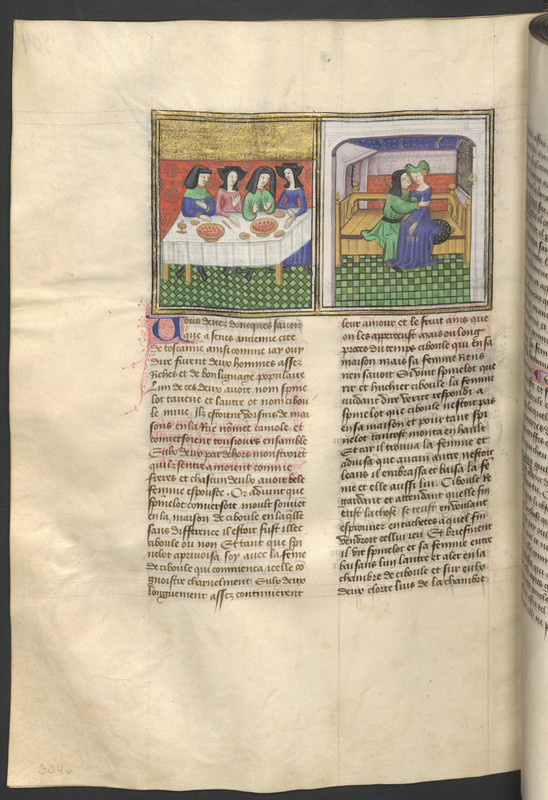 Vous devez doncques savoir
que a senes ancienne cite
de toscanne ainsi comme iay ouy
dire furent deux hommes assez
Riches et de bon lignage populaire
Lun de ces deux avoit nom spine
lot tavene et lautre ot nom cibou
le mine Ilz estoient voisins de mai
sons en la Rue nomee camole et
conversoient tousiours ensamble
Eulx deux par dehors monstroiet
quilz sentramoient comme
freres et chascun deulx avoit bele
femme espousee. Or advint que
spinelot conversoit moult souvet
en la maison de ciboule en laqlle
sans differece il estoit fust illec
ciboule ou non Et tant que spi
nelot aprivoisa soy avec la feme
de ciboule qui commenca icelle co
gnoistre charnelment Eulx deux
longuement assez continuerent
leur amour et le fruit ains que
on les apperceust mais ou long
proces du temps ciboule qui en sa
maison mais sa femme Riens
nen savoit Si vint spinelot que
rir et huchier ciboule la femme
cuidant dire verite respondi a
spinelot que ciboule nestoit pas
en sa maison et pour tant spi
nelot tantost monta en hault
Et car il trouva la femme et
advisa que aucun autre nestoit
leans il embrassa et baisa la fe
me et elle aussi lui. Ciboule re
gardant et attendant quelle fin
eust la chose se teust en voulant
esprouver en cachetes a quel fin
vendroit cellui ieu Et briefment
il vit spinelot et sa femme entre
baisans lun lautre et aler en la
chambre de ciboule et sur eulx
deux clorre luis de la chambre
304v